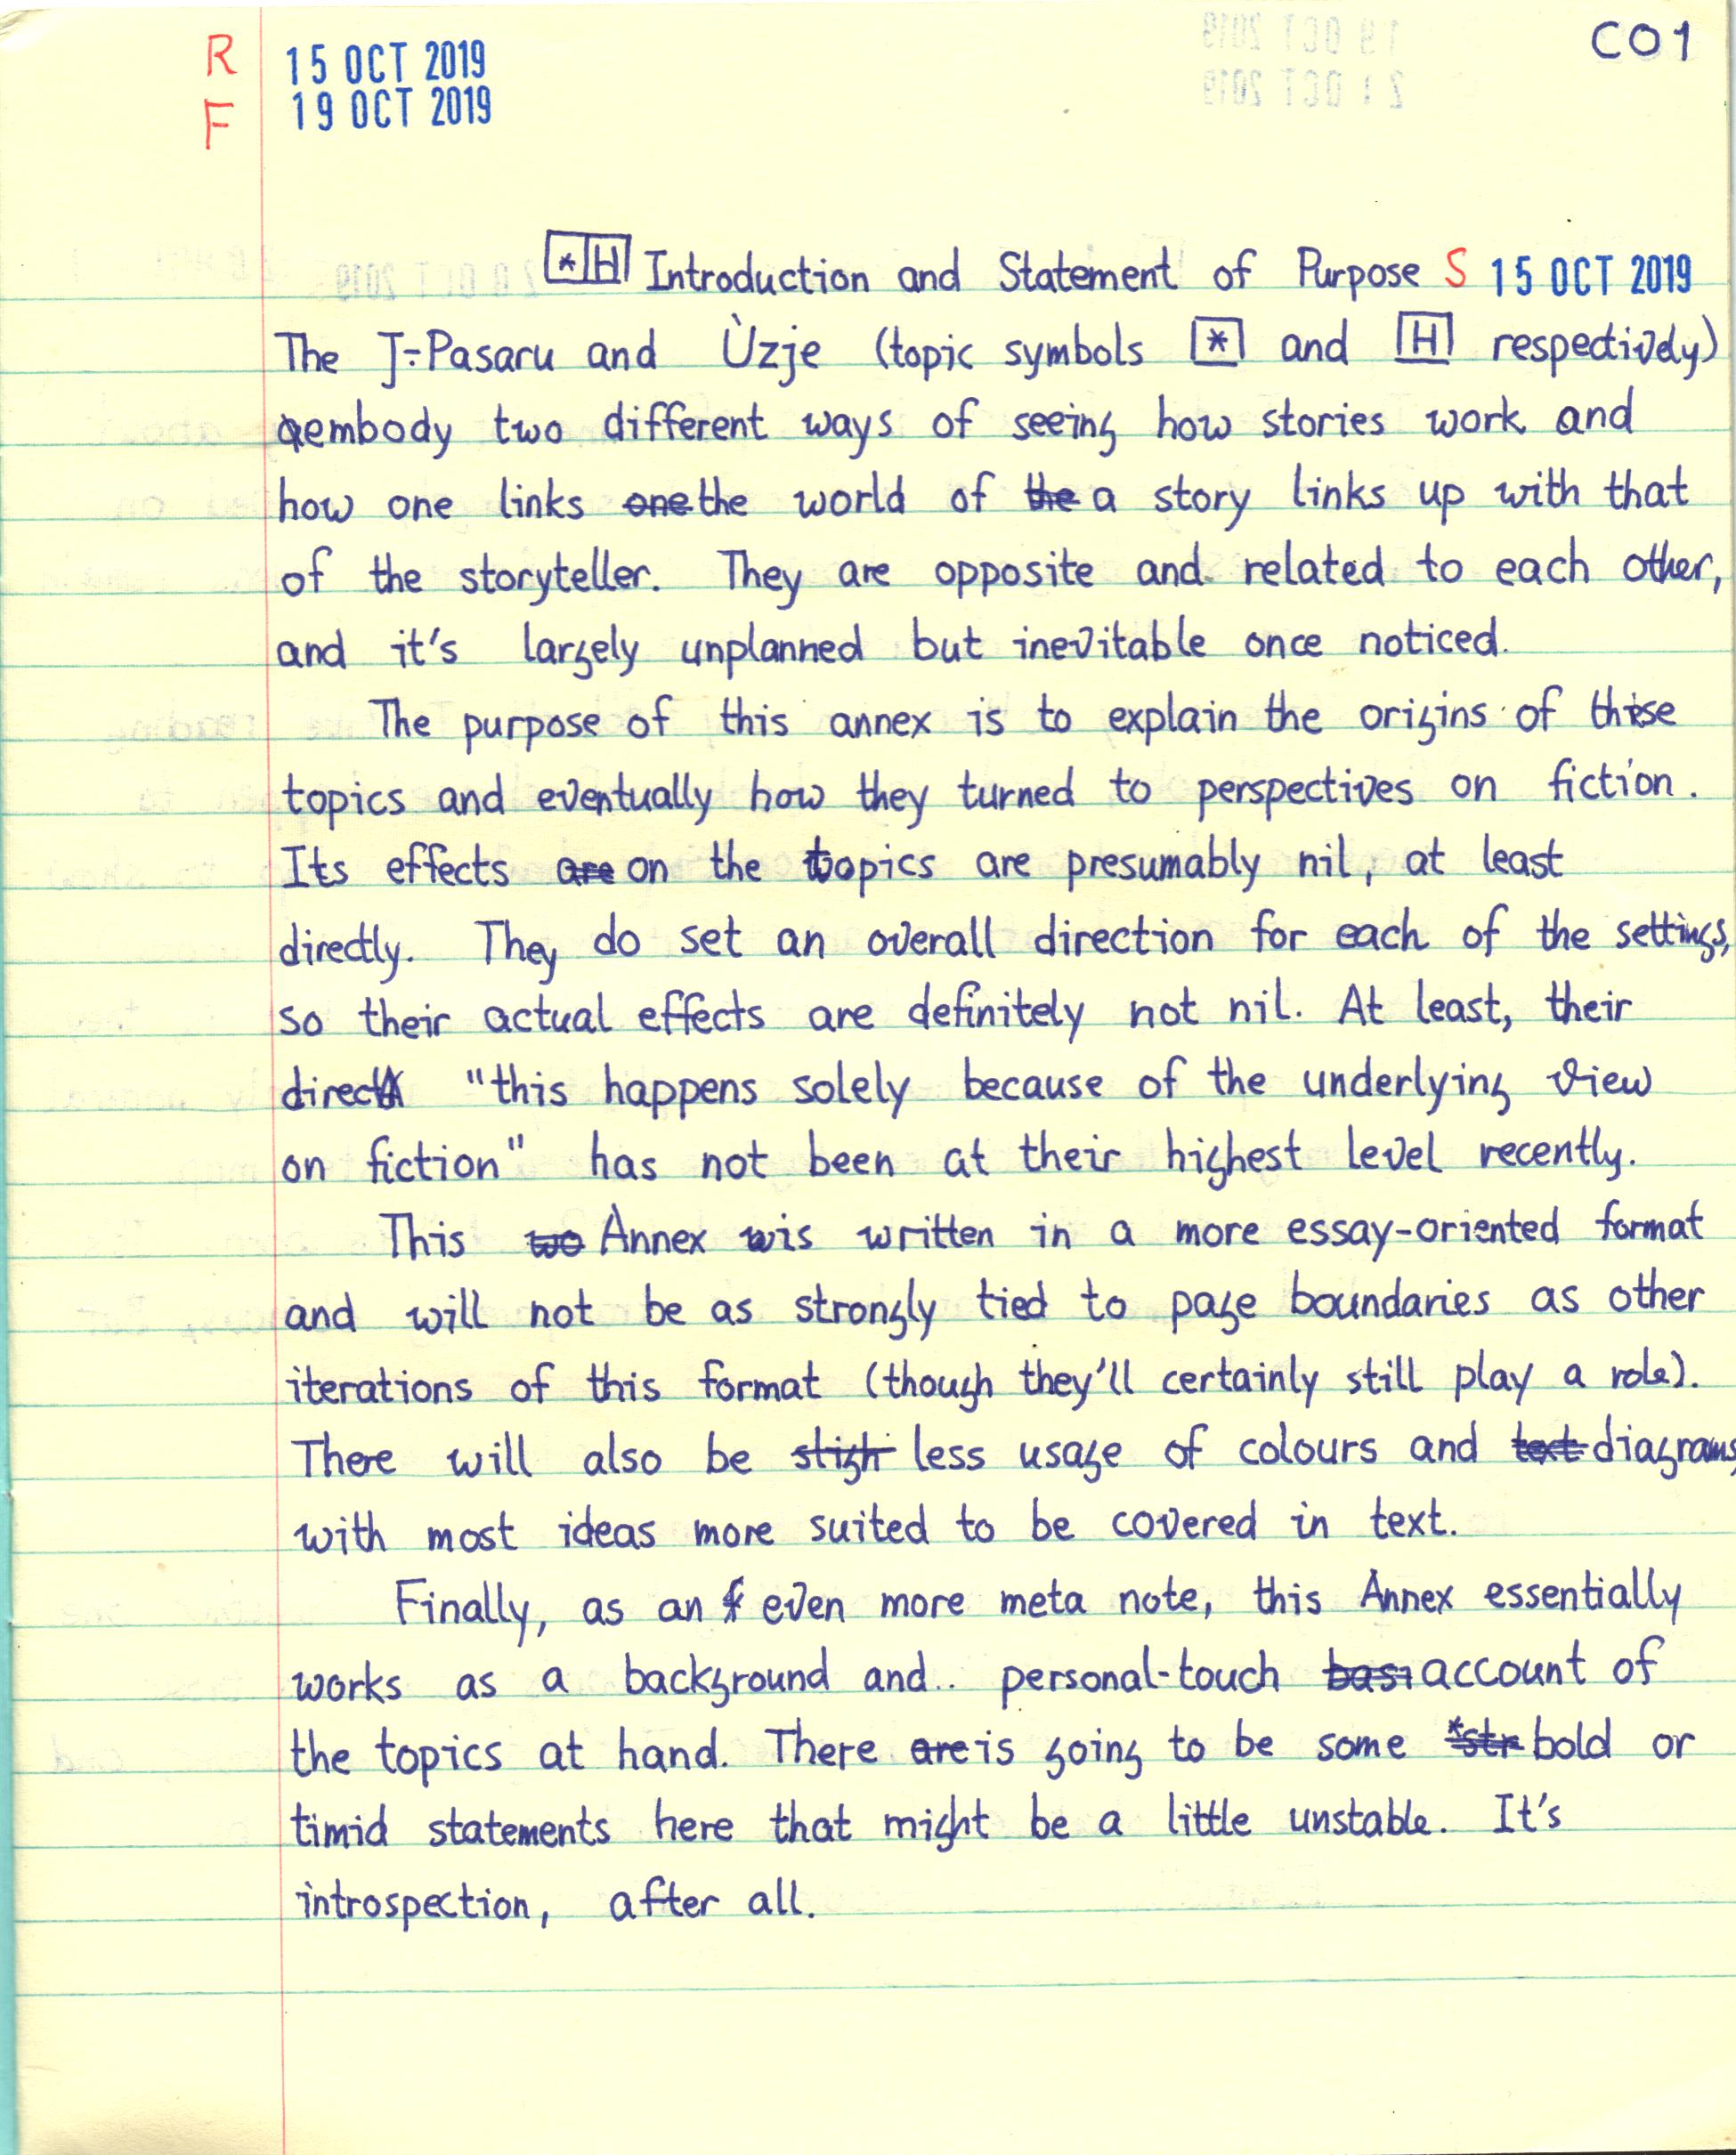 CO1
R 15 OCT 2019
F 19 OCT 2019
[*|H] Introduction and Statement of Purpose S 15 OCT 2019
The J-Pasaru and Ùzje (topic symbols [*] and [H] respectively)
embody two different ways of seeing how stories work and
how one links one the world of the a story links up with that
of the storyteller. They are opposite and related to each other,
and it's largely unplanned but inevitable once noticed.
The purpose of this annex is to explain the origins of these
topics and eventually how they turned to perspectives on fiction.
Its effects are on the topics are presumably nil, at least
directly. They do set an overall direction for each of the settings,
so their actual effects are definitely not nil. At least, their
direct "this happens solely because of the underlying view
on fiction" has not been at their highest level recently.
This wo Annex is written in a more essay-oriented format
and will not be as strongly tied to page boundaries as other
iterations of this format (though they'll certainly still play a role).
There will also be sligh less usage of colours and text diagrams,
with most ideas more suited to be covered in text.
Finally, as an even more meta note, this Annex essentially
works as a background and.. personal-touch basi account of
the topics at hand. There are is going to be some *str bold or
timid statements here that might be a little unstable. It's
introspection, after all.